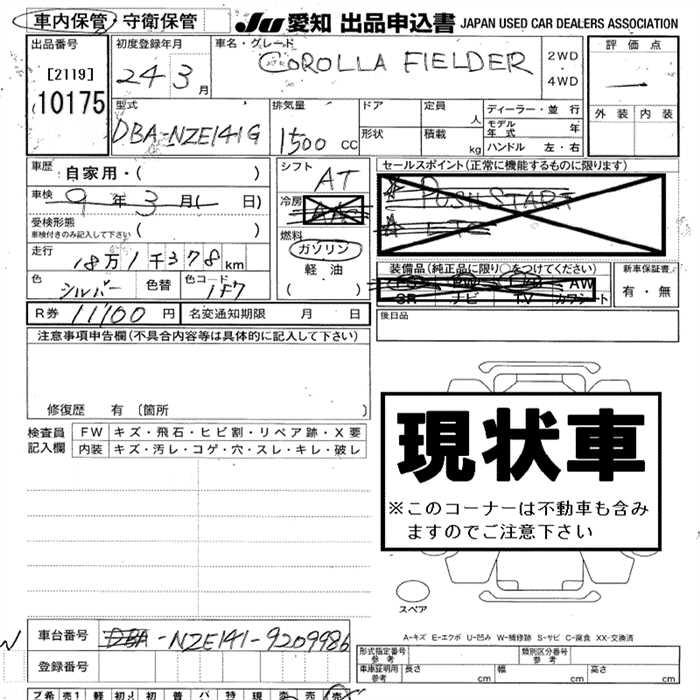 車内保管・守衛保管 JU 愛知 出品申込書 JAPAN USED CAR DEALERS ASSOCIATION
出品番号 初度登録年月 車名・グレード 評価点
[2119] 24 3月 COROLLA FIELDER 2WD
4WD
10175 型式 排気量 ドア 定員 人 ディーラー・並行 外装 内装
DBA-NZE141G 1500 CC 形状 積載 kg モデル年式 年
ハンドル 左・右
車歴 自家用・( ) シフト AT セールスポイント(正常に機能するものに限ります)
車検 9年3月( 日) 冷房 PUSH START
受検形態 車検付きのみ記入して下さい ( ) 燃料 ガソリン
走行 18万1千378km 軽油 装備品(純正品に限り○をつけてください) 新車保証書
色 シルバー 色替 色コード 1F7 ( ) AW 有・無
SR ナビ TV カワシート
R券 11100円 名変通知期限 月 日 後日品
注意事項申告欄(不具合内容等は具体的に記入して下さい)
修復歴 有〔箇所 〕
検査員 FW キズ・飛石・ヒビ割・リペア跡・X要
記入欄 内装 キズ・汚レ・コゲ・穴・スレ・キレ・破レ
現状車
※このコーナーは不動車も含み
ますのでご注意下さい
スペア
A-キズ E-エクボ U-凹み W-補修跡 S-サビ C-腐食 XX-交換済
車台番号 DBA-NZE141-9209986
形式指定番号 参考 類別区分番号 参考
登録番号 車庫証明用 参考 長さ cm 幅 cm 高さ cm